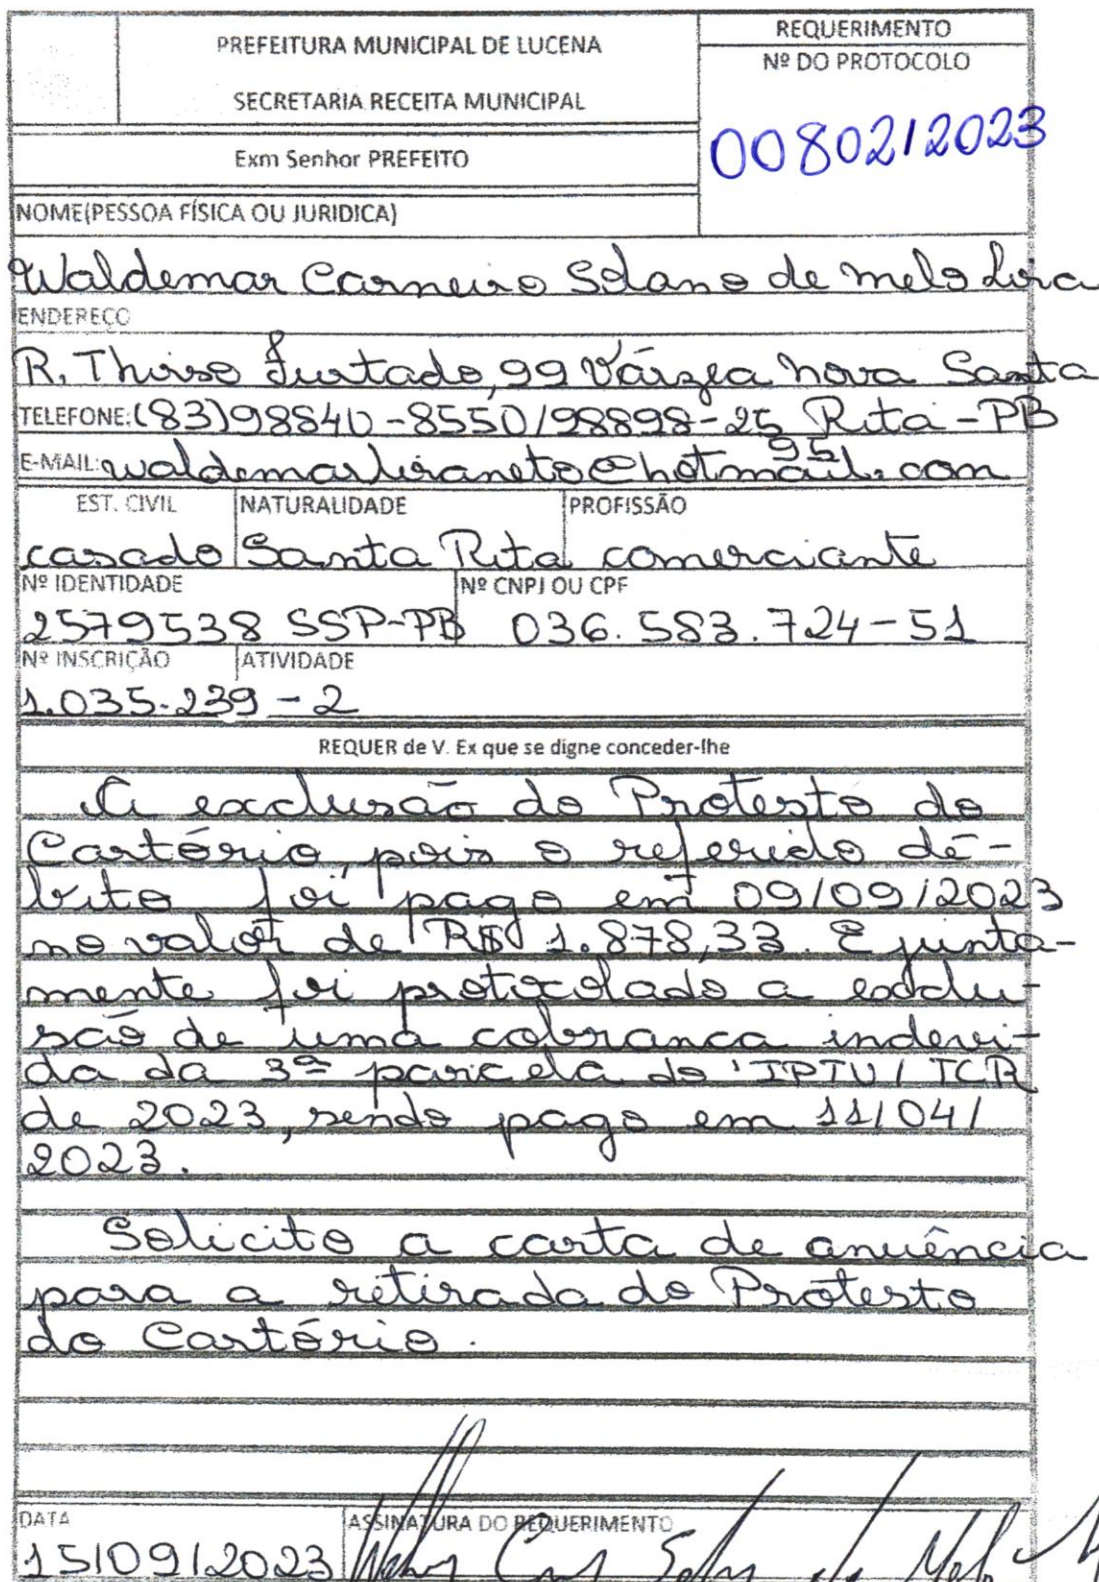 PREFEITURA MUNICIPAL DE LUCENA
SECRETARIA RECEITA MUNICIPAL
REQUERIMENTO
Nº DO PROTOCOLO
00802/2023
Exm Senhor PREFEITO
NOME(PESSOA FÍSICA OU JURIDICA)
Waldemar Carneiro Solano de Melo Lira
ENDEREÇO
R. Thirso Furtado, 99 Várzea Nova Santa
TELEFONE: (83)98840-8550/98898-25 Rita-PB
95
E-MAIL: waldemarliraneto@hotmail.com
EST. CIVIL NATURALIDADE PROFISSÃO
casado Santa Rita comerciante
Nº IDENTIDADE Nº CNPJ OU CPF
2579538 SSP-PB 036.583.724-51
Nº INSCRIÇÃO ATIVIDADE
1.035.239-2
REQUER de V. Ex que se digne conceder-lhe
A exclusão do Protesto do
Cartório, pois o referido dé-
bito foi pago em 09/09/2023
no valor de R$ 1.878,33. E junta-
mente foi protocolado a exclu-
são de uma cobranca indevi-
da da 3ª parcela do IPTU/TCR
de 2023, sendo pago em 11/04/
2023.
Solicito a carta de anuência
para a retirada do Protesto
do Cartório.
DATA ASSINATURA DO REQUERIMENTO
15/09/2023